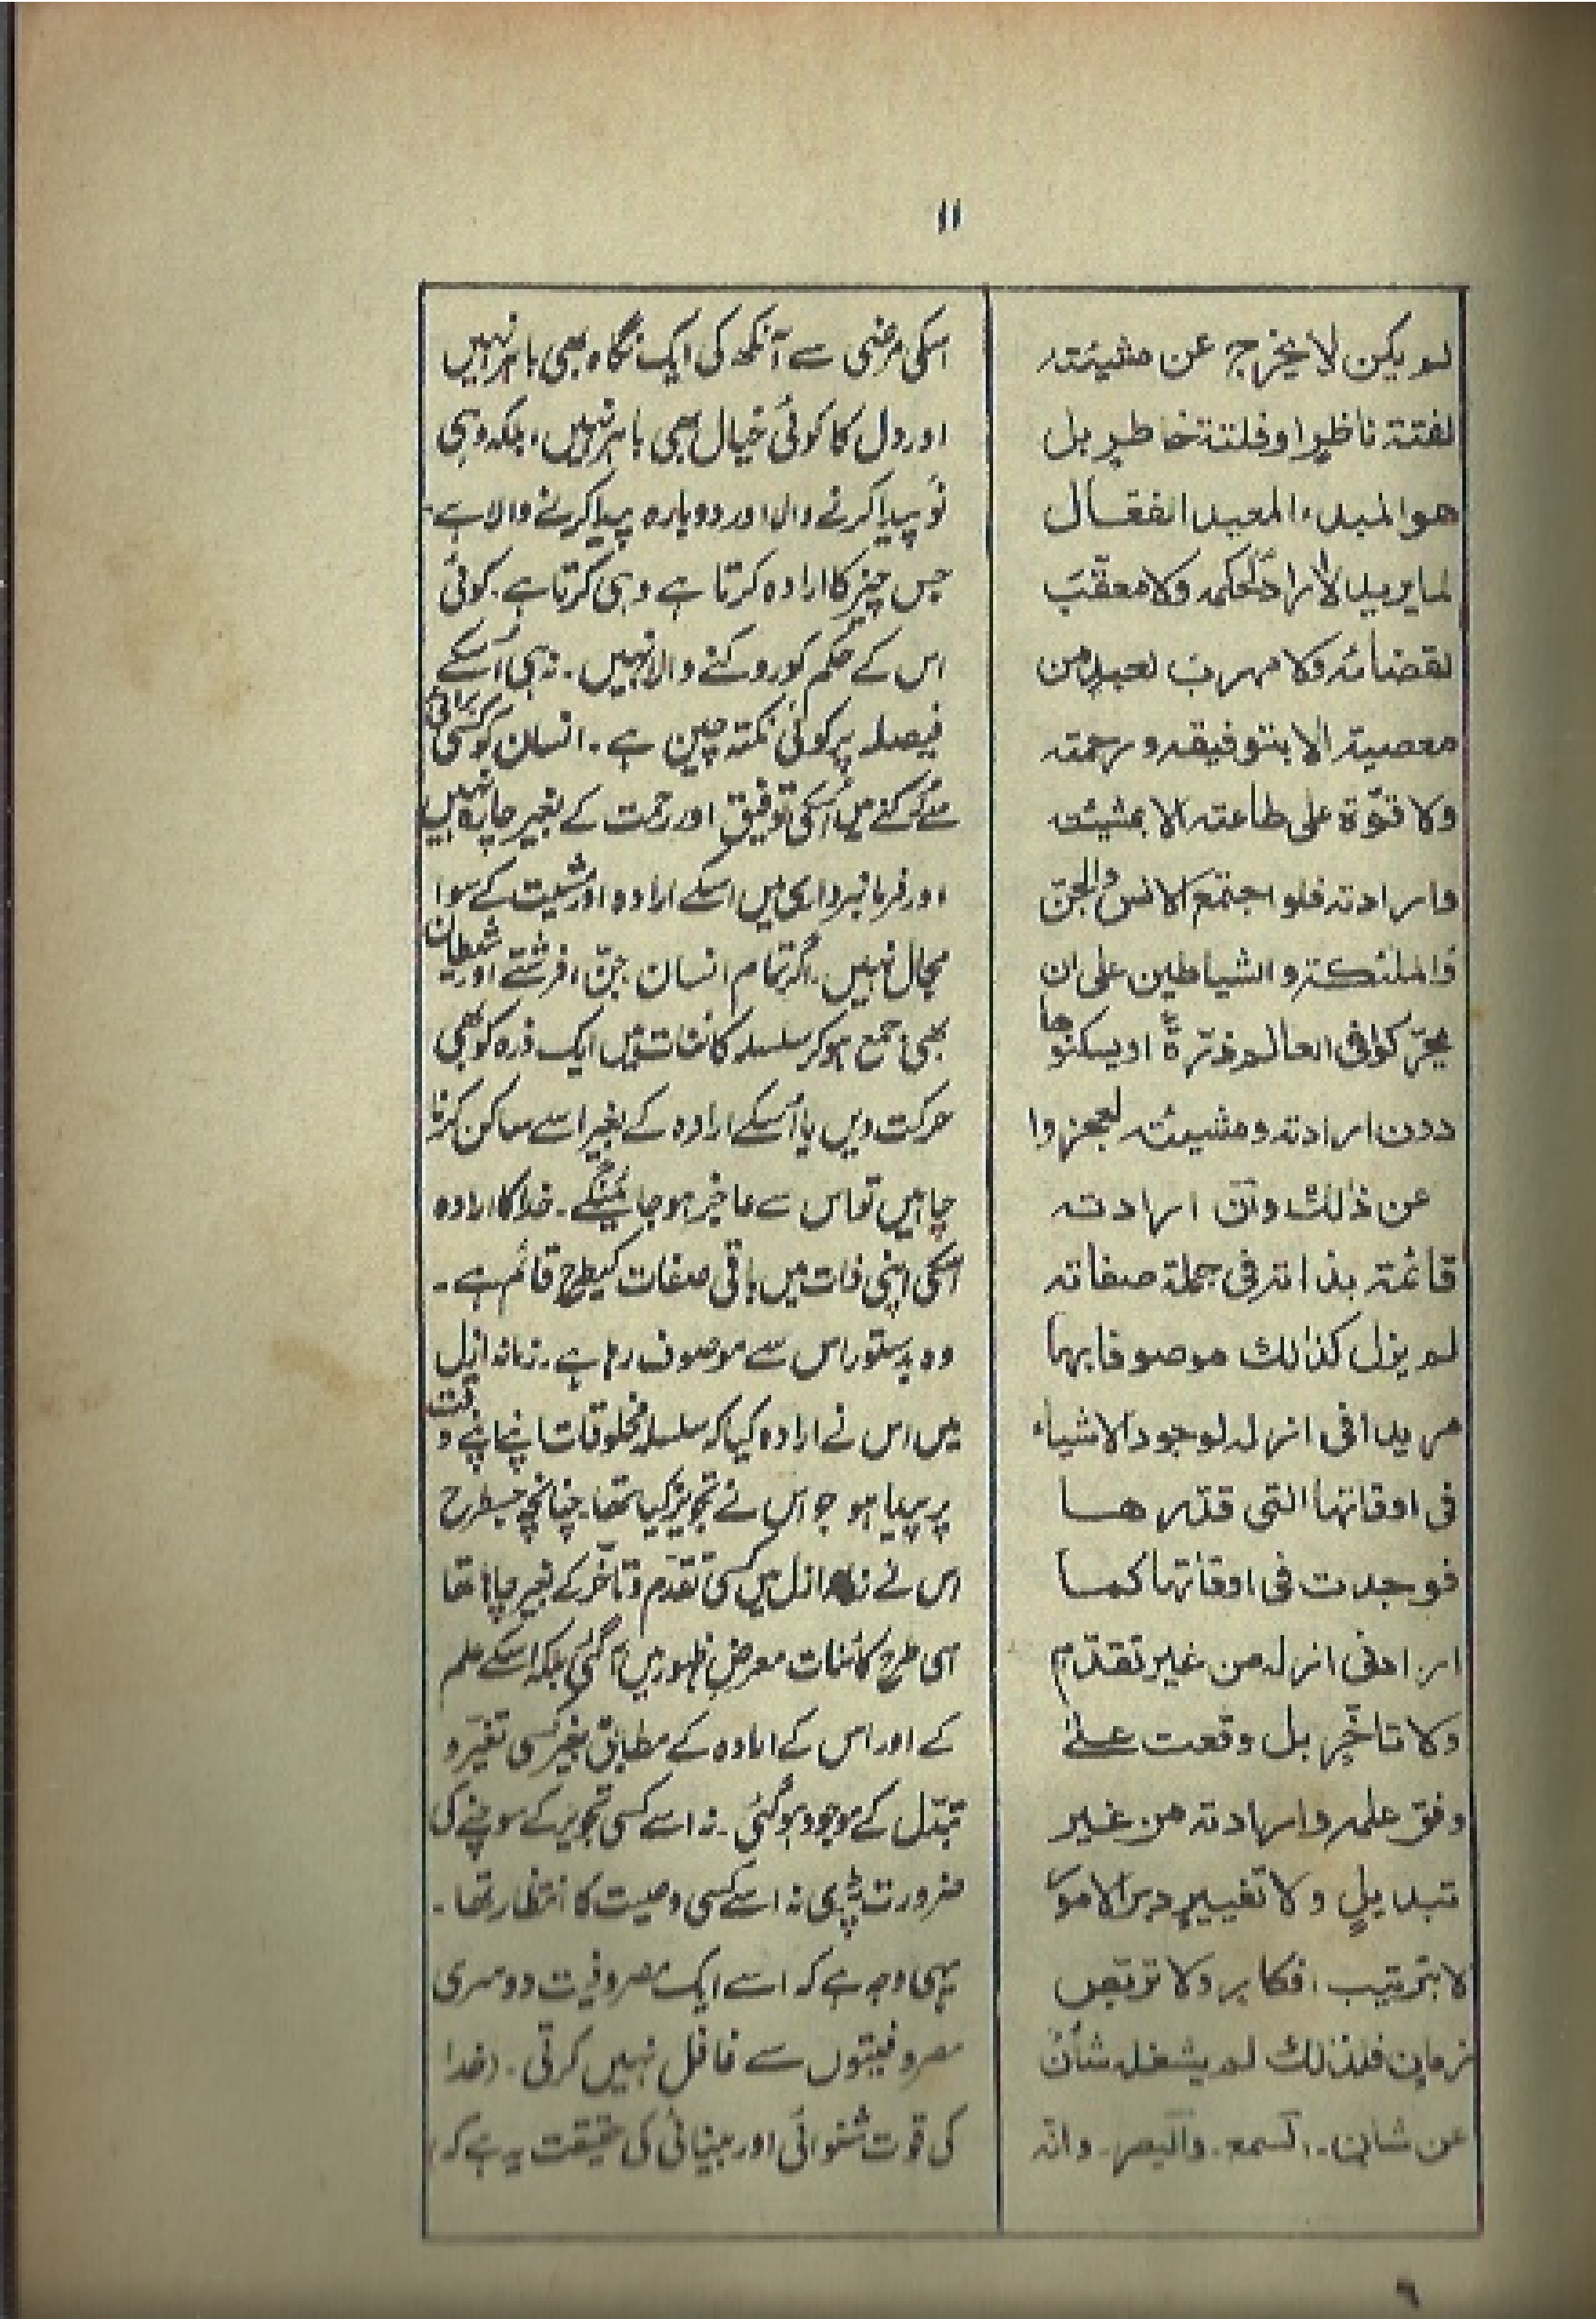 ۱۱
لم یکن لا یخرج عن مشیئتہ
لفتۃ ناظر او فلتۃ خاطر بل
ھو المبدء المعید الفعال
لما یرید لا رادّ لحکمہ ولا معقّب
لقضائہ ولا مھرب لعبد من
معصیۃ الا بتوفیقہ و رحمتہ
ولا قوّۃ علی طاعتہ الا بمشیئتہ
وارادتہ فلو اجتمع الانس والجن
والملئکۃ والشیاطین علی ان
یحرّکوا فی العالم ذرۃً او یسکنوھا
دون ارادتہ ومشیئتہ لعجزوا
عن ذٰلک وان ارادتہ
قائمۃ بذاتہ فی جملۃ صفاتہ
لم یزل کذالک موصوفا بھا
مریدا فی ازلہ لوجود الاشیاء
فی اوقاتھا التی قدرھا
فوجدت فی اوقاتھا کما
اراد فی ازلہ من غیر تقدّم
ولا تاخّر بل وقعت علیٰ
وفق علمہ وارادتہ من غیر
تبدیلٍ ولا تغییر دبر الامور
لا بترتیب افکار ولا تربّص
زمان فلذٰلک لم یشغلہ شأن
عن شان۔ السمع۔ والبصر۔ وانہ
اسکی مرضی سے آنکھ کی ایک نگاہ بھی باہر نہیں
اور دل کا کوئی خیال بھی باہر نہیں، بلکہ وہی
نَو پیدا کرنے والا اور دوبارہ پیدا کرنے والا ہے۔
جس چیز کا ارادہ کرتا ہے وہی کرتا ہے۔ کوئی
اس کے حکم کو روکنے والا نہیں۔ نہ ہی اُسکے
فیصلہ پر کوئی نکتہ چین ہے۔ انسان کو کسی برائی
سے رُکنے میں اُسکی توفیق اور رحمت کے بغیر چارہ نہیں
اور فرمانبرداری میں اسکے ارادہ اور مشیت کے سوا
مجال نہیں۔ اگر تمام انسان جنّ، فرشتے اور شیطان
بھی جمع ہو کر سلسلہ کائنات میں ایک ذرہ کو بھی
حرکت دیں یا اُسکے ارادہ کے بغیر اسے ساکن کرنا
چاہیں تو اس سے عاجز ہو جائینگے۔ خدا کا ارادہ
اُسکی اپنی ذات میں باقی صفات کیطرح قائم ہے۔
وہ بدستور اس سے موصوف رہا ہے۔ زمانہ ازل
میں اس نے ارادہ کیا کہ سلسلہ مخلوقات اپنے اپنے وقت
پر پیدا ہو جو اس نے تجویز کیا تھا۔ چنانچہ جسطرح
اس نے ازل میں کسی تقدّم و تأخّر کے بغیر چاہا تھا
اسی طرح کائنات معرض ظہور میں آ گئی بلکہ اسکے علم
کے اور اس کے ارادہ کے مطابق بغیر کسی تغیّر و
تبدّل کے موجود ہو گئی۔ نہ اسے کسی تجویز کے سوچنے کی
ضرورت پڑی نہ اسے کسی کا انتظار تھا۔
یہی وجہ ہے کہ اسے ایک مصروفیت دوسری
مصروفیتوں سے غافل نہیں کرتی۔ (خدا
کی قوت شنوائی اور بینائی کی حقیقت یہ ہے کہ)